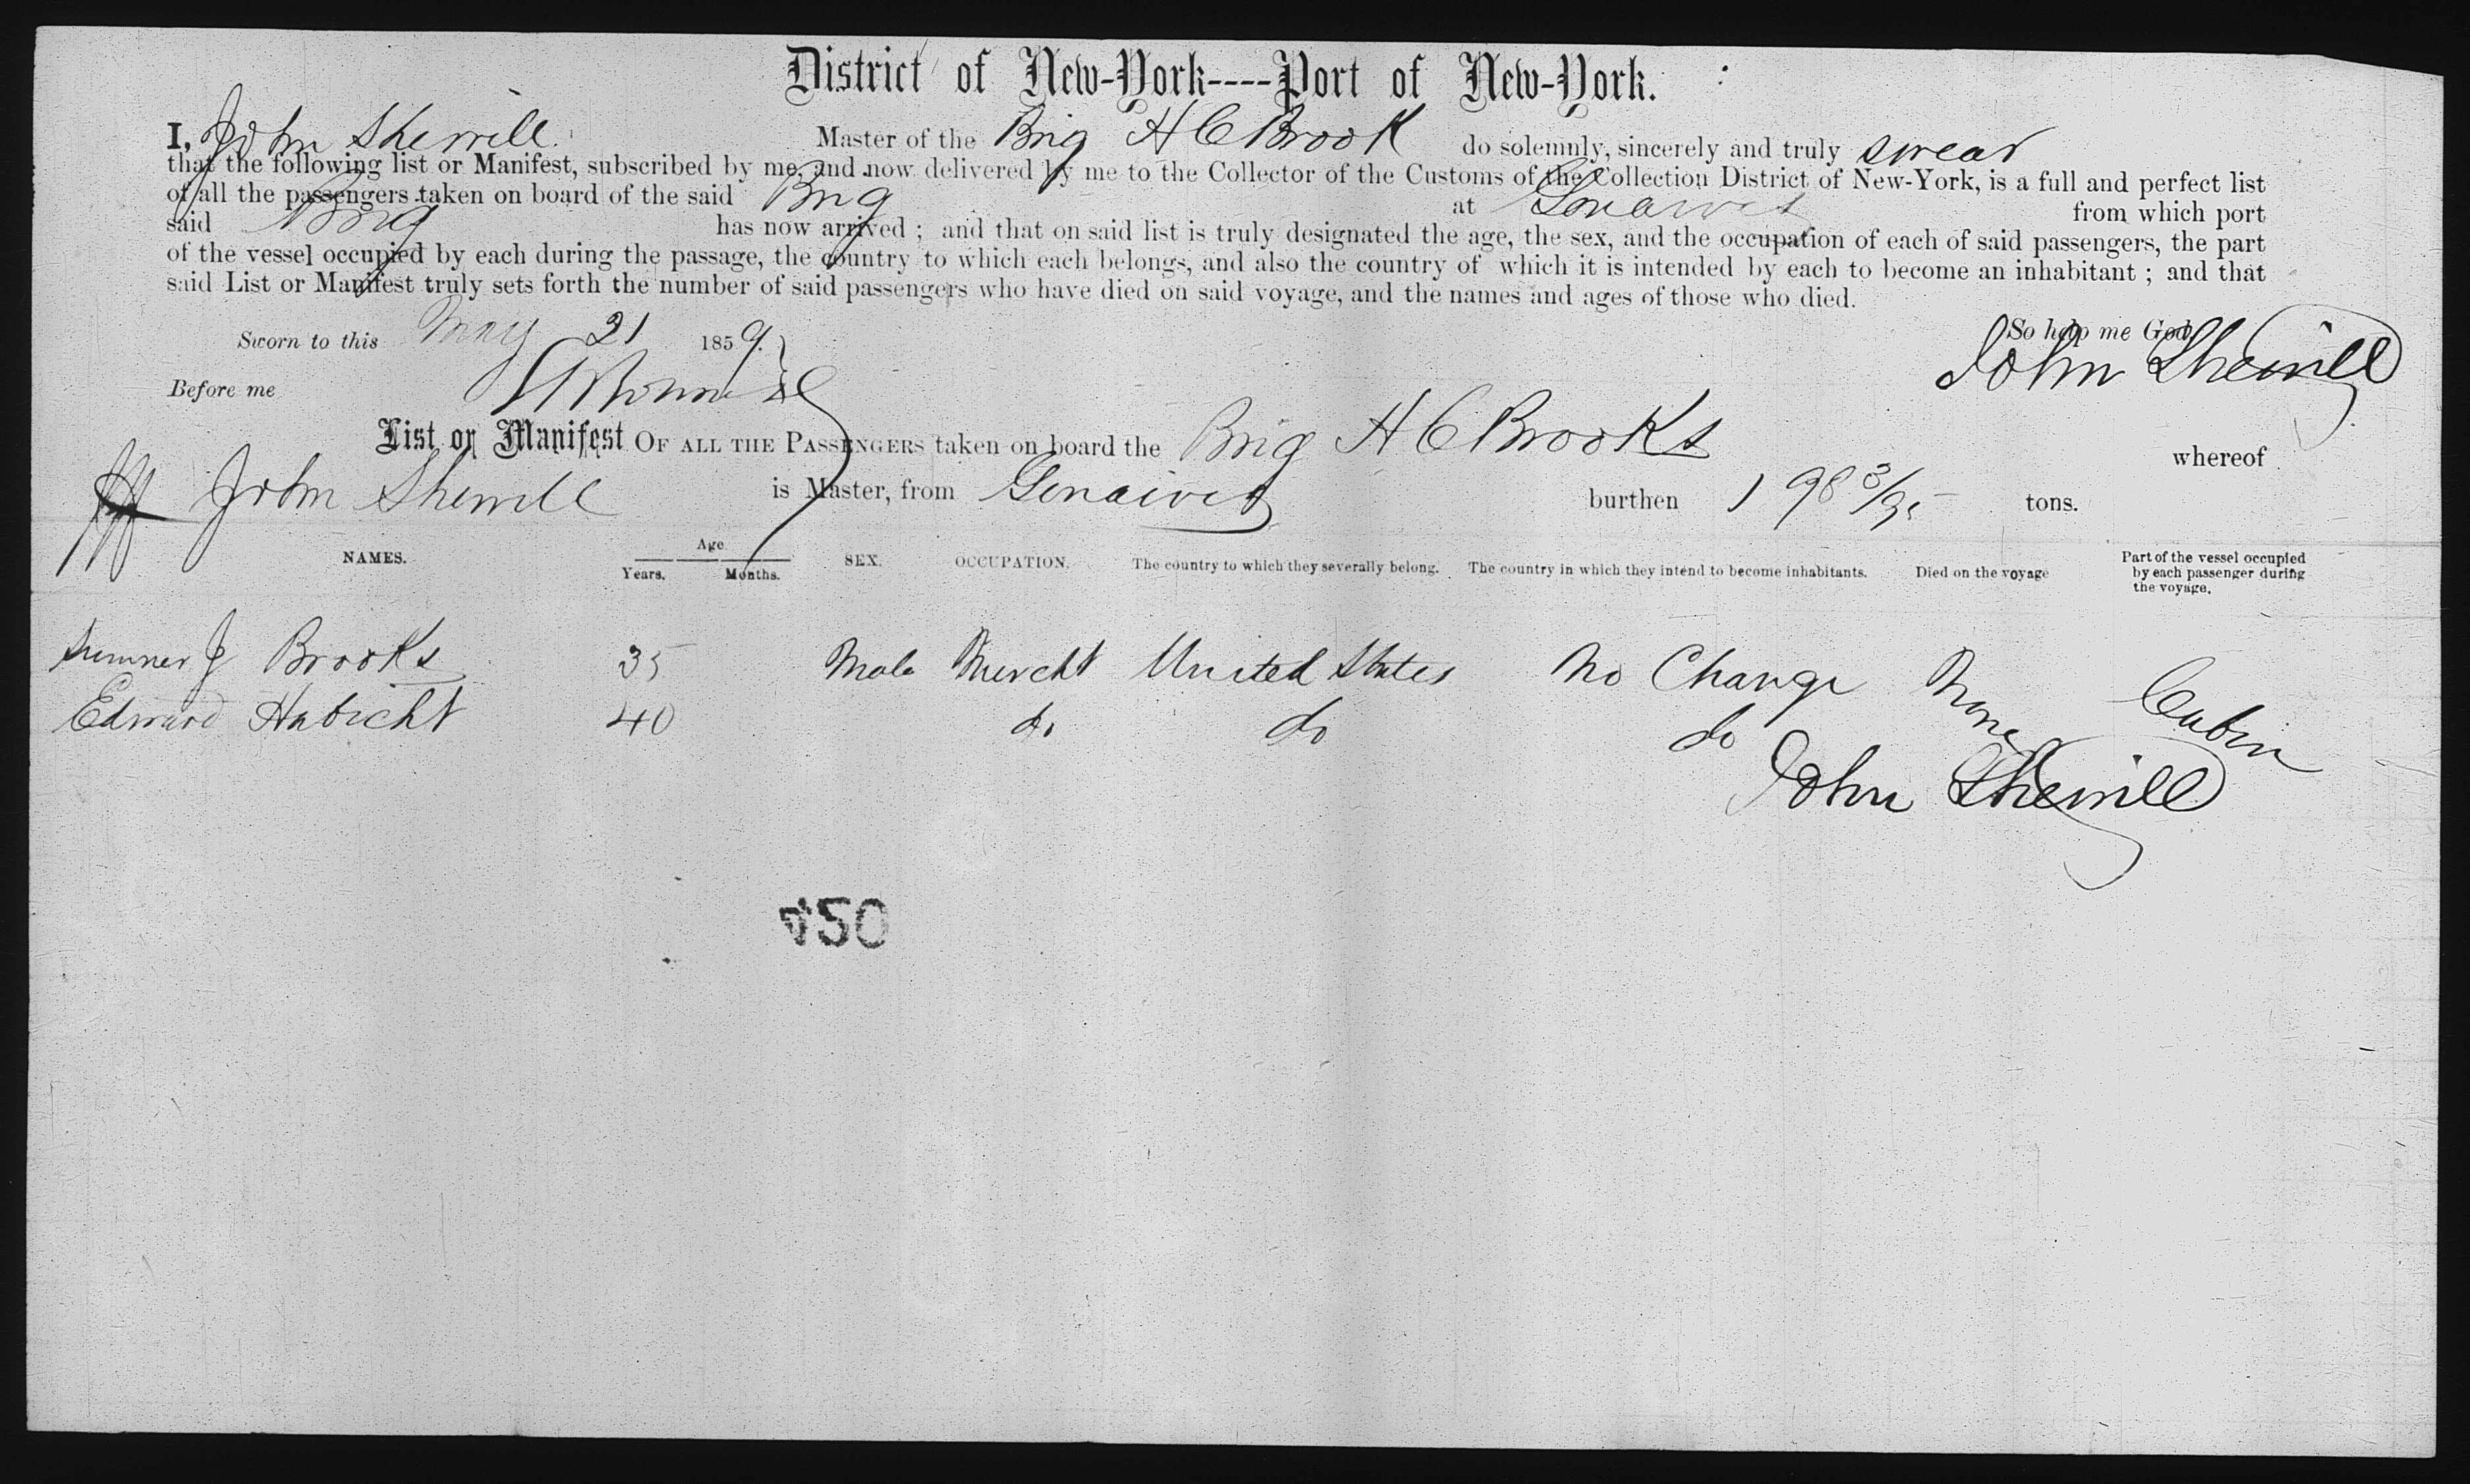 District of New-York----Port of New-York.
I, John Sherrill Master of the Brig H C Brook do solemnly, sincerely and truly swear
that the following list or Manifest, subscribed by me, and now delivered by me to the Collector of the Customs of the Collection District of New-York, is a full and perfect list
of all the passengers taken on board of the said Brig at Gonaives from which port
said Brig has now arrived ; and that on said list is truly designated the age, the sex, and the occupation of each of said passengers, the part
of the vessel occupied by each during the passage, the country to which each belongs, and also the country of which it is intended by each to become an inhabitant ; and that
said List or Manifest truly sets forth the number of said passengers who have died on said voyage, and the names and ages of those who died.
Sworn to this May 21 1859. So help me God
John Sherrill
Before me
List or Manifest OF ALL THE PASSENGERS taken on board the Brig H C Brooks whereof
John Sherrill is Master, from Genaives burthen 198 3/95 tons.
NAMES. Age Years. Months. SEX. OCCUPATION. The country to which they severally belong. The country in which they intend to become inhabitants. Died on the voyage Part of the vessel occupied by each passenger during the voyage.
Sumner J Brooks 35 Male Mercht United States No Change None Cabin
Edward Habicht 40 do do do
John Sherrill
450